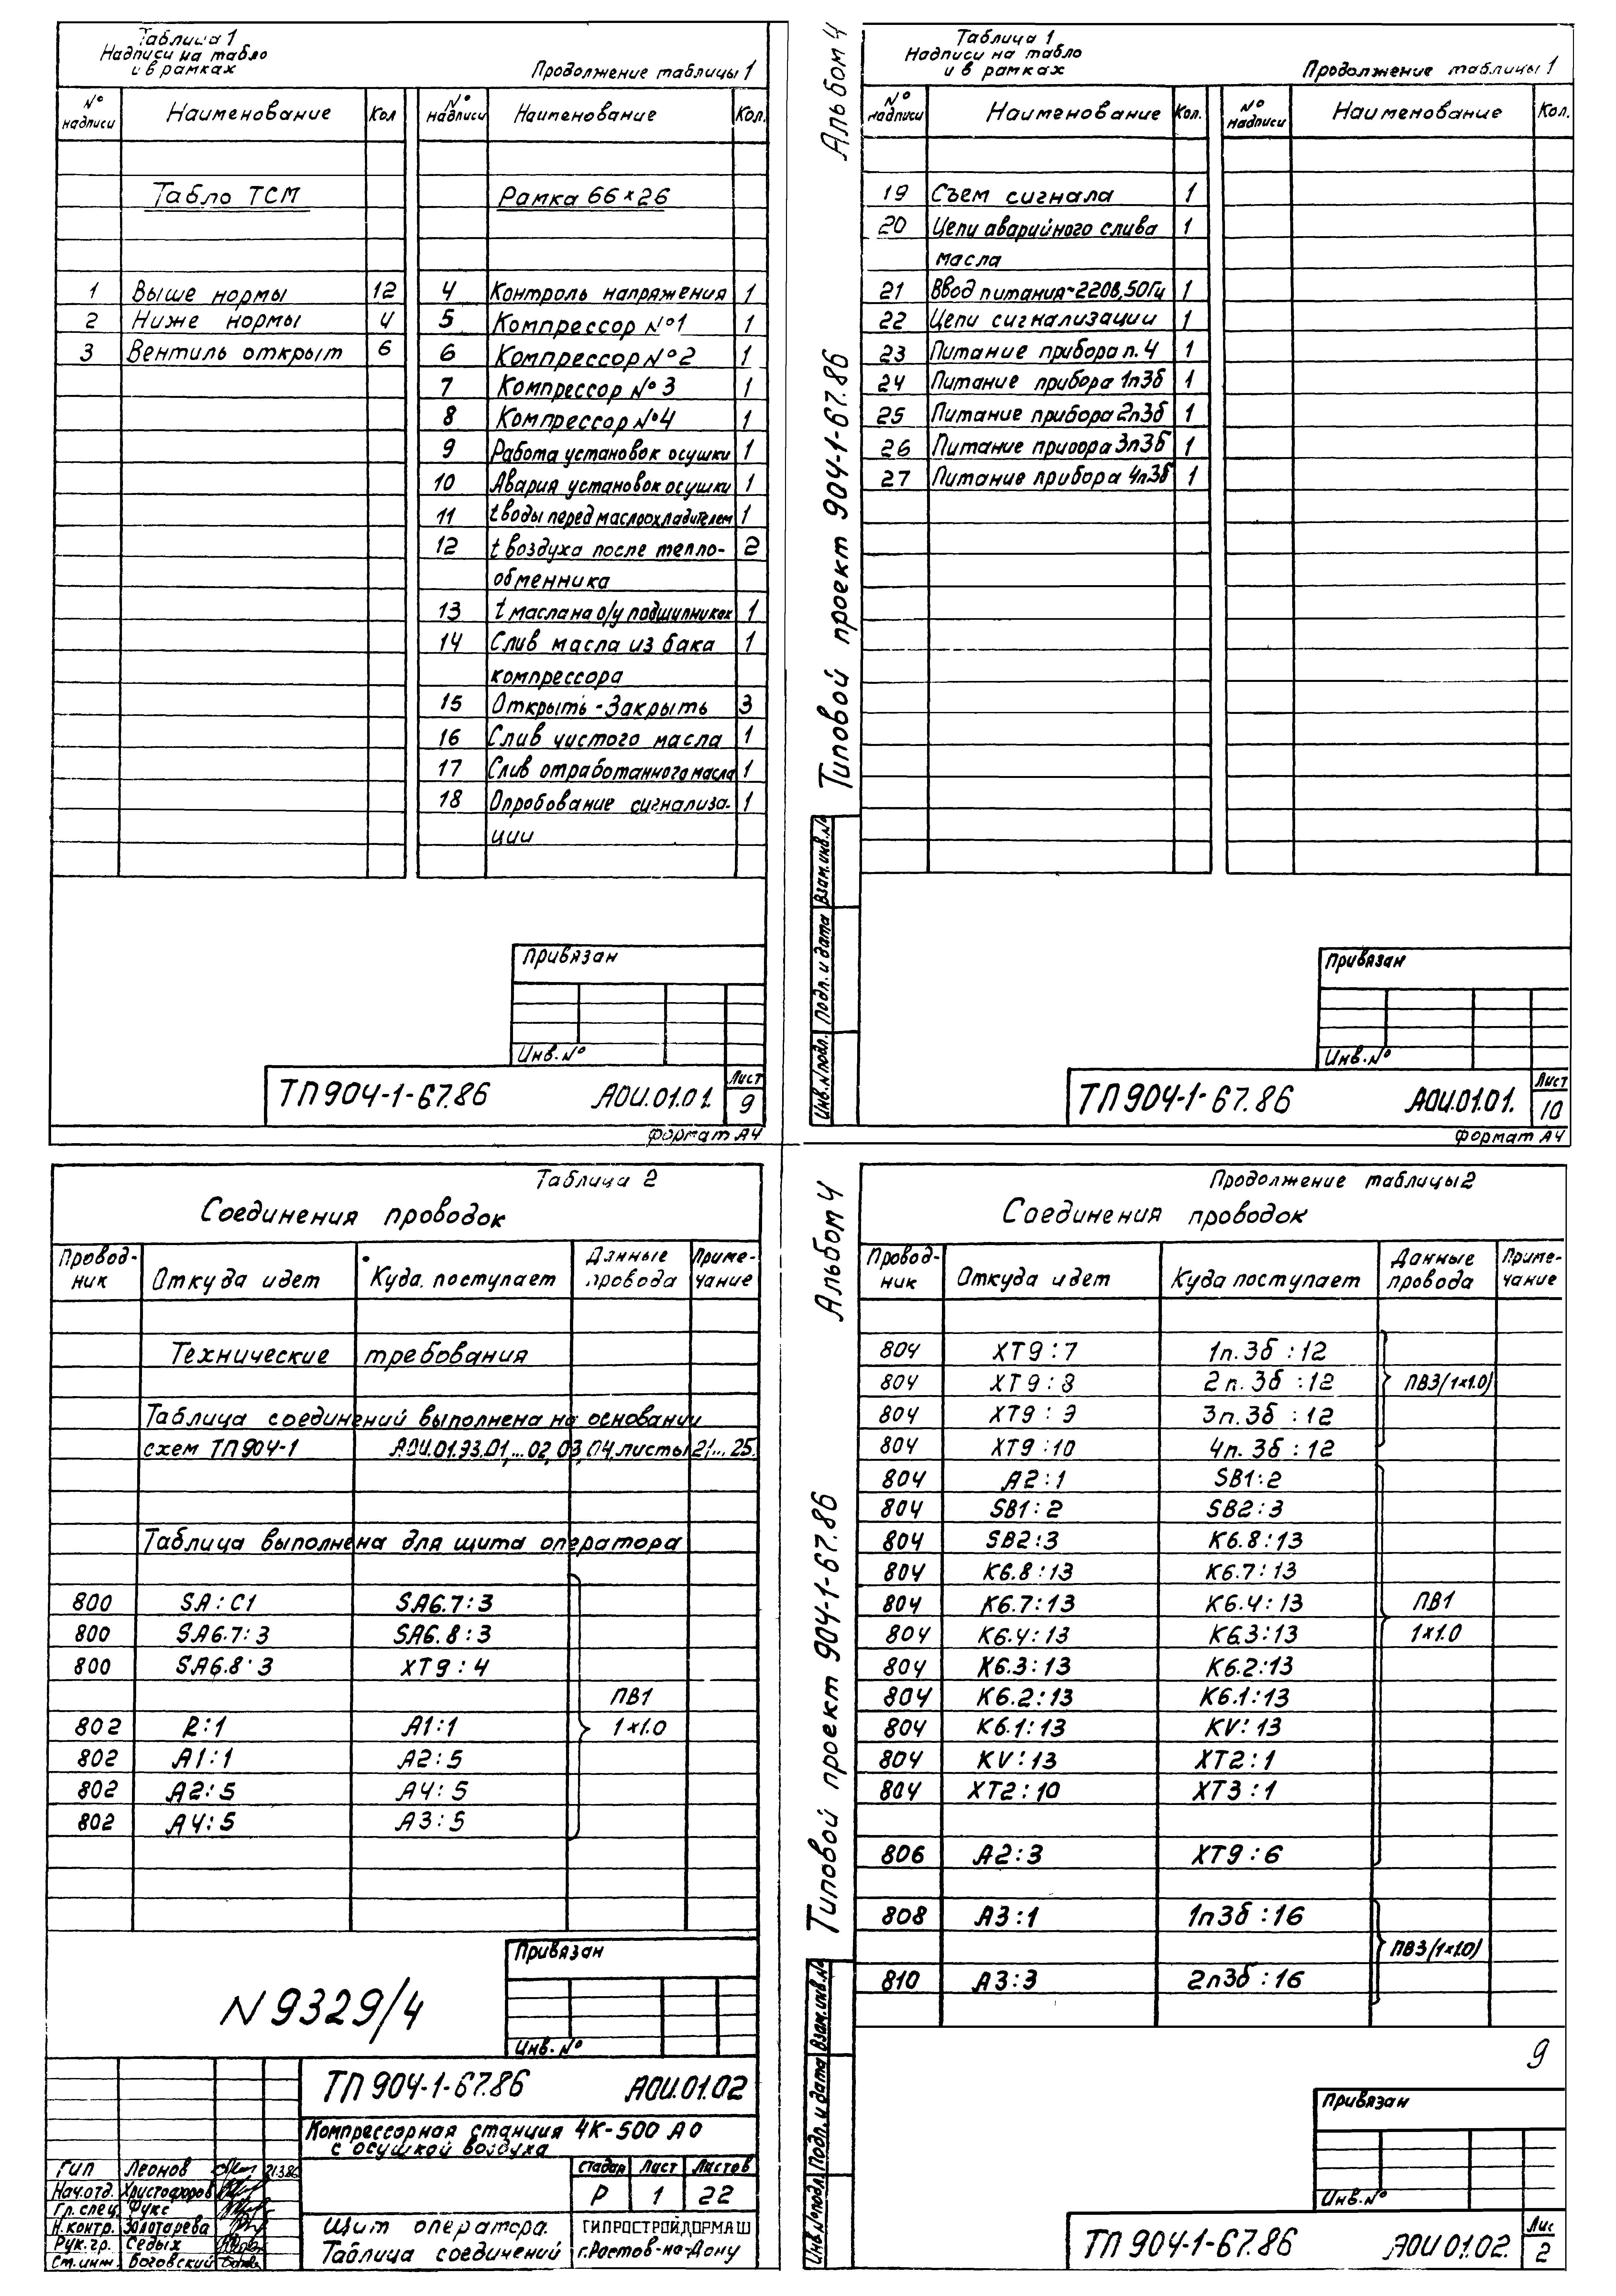 Таблица 1
Надписи на табло
и в рамках
Продолжение таблицы 1
№ надписи Наименование Кол № надписи Наименование Кол.
Табло ТСМ Рамка 66×26
1 Выше нормы 12 4 Контроль напряжения 1
2 Ниже нормы 4 5 Компрессор №1 1
3 Вентиль открыт 6 6 Компрессор №2 1
7 Компрессор №3 1
8 Компрессор №4 1
9 Работа установок осушки 1
10 Авария установок осушки 1
11 t воды перед маслоохладителем 1
12 t воздуха после тепло- 2
обменника
13 t масла на о/у подшипниках 1
14 Слив масла из бака 1
компрессора
15 Открыть - Закрыть 3
16 Слив чистого масла 1
17 Слив отработанного масла 1
18 Опробование сигнализа- 1
ции
Привязан
Инв.№
ТП 904-1-67.86 АОИ.01.01. Лист 9
Формат А4
Альбом 4
Типовой проект 904-1-67.86
Таблица 1
Надписи на табло
и в рамках
Продолжение таблицы 1
№ надписи Наименование Кол. № надписи Наименование Кол.
19 Съем сигнала 1
20 Цепи аварийного слива 1
масла
21 Ввод питания ~220В, 50Гц 1
22 Цепи сигнализации 1
23 Питание прибора п. 4 1
24 Питание прибора 1п3б 1
25 Питание прибора 2п3б 1
26 Питание прибора 3п3б 1
27 Питание прибора 4п3б 1
Инв.№ подл. Подп. и дата Взам.инв.№
Привязан
Инв.№
ТП 904-1-67.86 АОИ.01.01. Лист 10
Формат А4
Таблица 2
Соединения проводок
Провод-ник Откуда идет Куда поступает Данные провода Приме-чание
Технические требования
Таблица соединений выполнена на основании
схем ТП 904-1 АОИ.01.93.01,...02,03,04,листы 21...25.
Таблица выполнена для щита оператора
800 SA : C1 SA6.7 : 3
800 SA6.7 : 3 SA6.8 : 3
800 SA6.8 : 3 XT9 : 4
ПВ1
802 R : 1 A1 : 1 1×1.0
802 A1 : 1 A2 : 5
802 A2 : 5 A4 : 5
802 A4 : 5 A3 : 5
N 9329/4
Привязан
Инв. №
ТП 904-1-67.86 АОИ.01.02
Компрессорная станция 4К-500 АО
с осушкой воздуха
ГИП Леонов 21.3.86
Нач.отд. Христофоров
Гл. спец. Фукс
Н.контр. Золотарева
Рук.гр. Седых
Ст.инж. Боговский
Стадия Лист Листов
Р 1 22
Щит оператора.
Таблица соединений
ГИПРОСТРОЙДОРМАШ
г.Ростов-на-Дону
Альбом 4
Типовой проект 904-1-67.86
Продолжение таблицы 2
Соединения проводок
Провод-ник Откуда идет Куда поступает Данные провода Приме-чание
804 XT9 : 7 1п. 3б : 12
804 XT9 : 8 2п. 3б : 12 ПВ3(1×1.0)
804 XT9 : 9 3п. 3б : 12
804 XT9 : 10 4п. 3б : 12
804 A2 : 1 SB1 : 2
804 SB1 : 2 SB2 : 3
804 SB2 : 3 K6.8 : 13
804 K6.8 : 13 K6.7 : 13
804 K6.7 : 13 K6.4 : 13 ПВ1
804 K6.4 : 13 K6.3 : 13 1×1.0
804 K6.3 : 13 K6.2 : 13
804 K6.2 : 13 K6.1 : 13
804 K6.1 : 13 KV : 13
804 KV : 13 XT2 : 1
804 XT2 : 10 XT3 : 1
806 A2 : 3 XT9 : 6
808 A3 : 1 1п3б : 16
ПВ3(1×1.0)
810 A3 : 3 2п3б : 16
9
Инв.№ подл. Подп. и дата Взам.инв.№
Привязан
Инв.№
ТП 904-1-67.86 АОИ 01.02. Лис 2